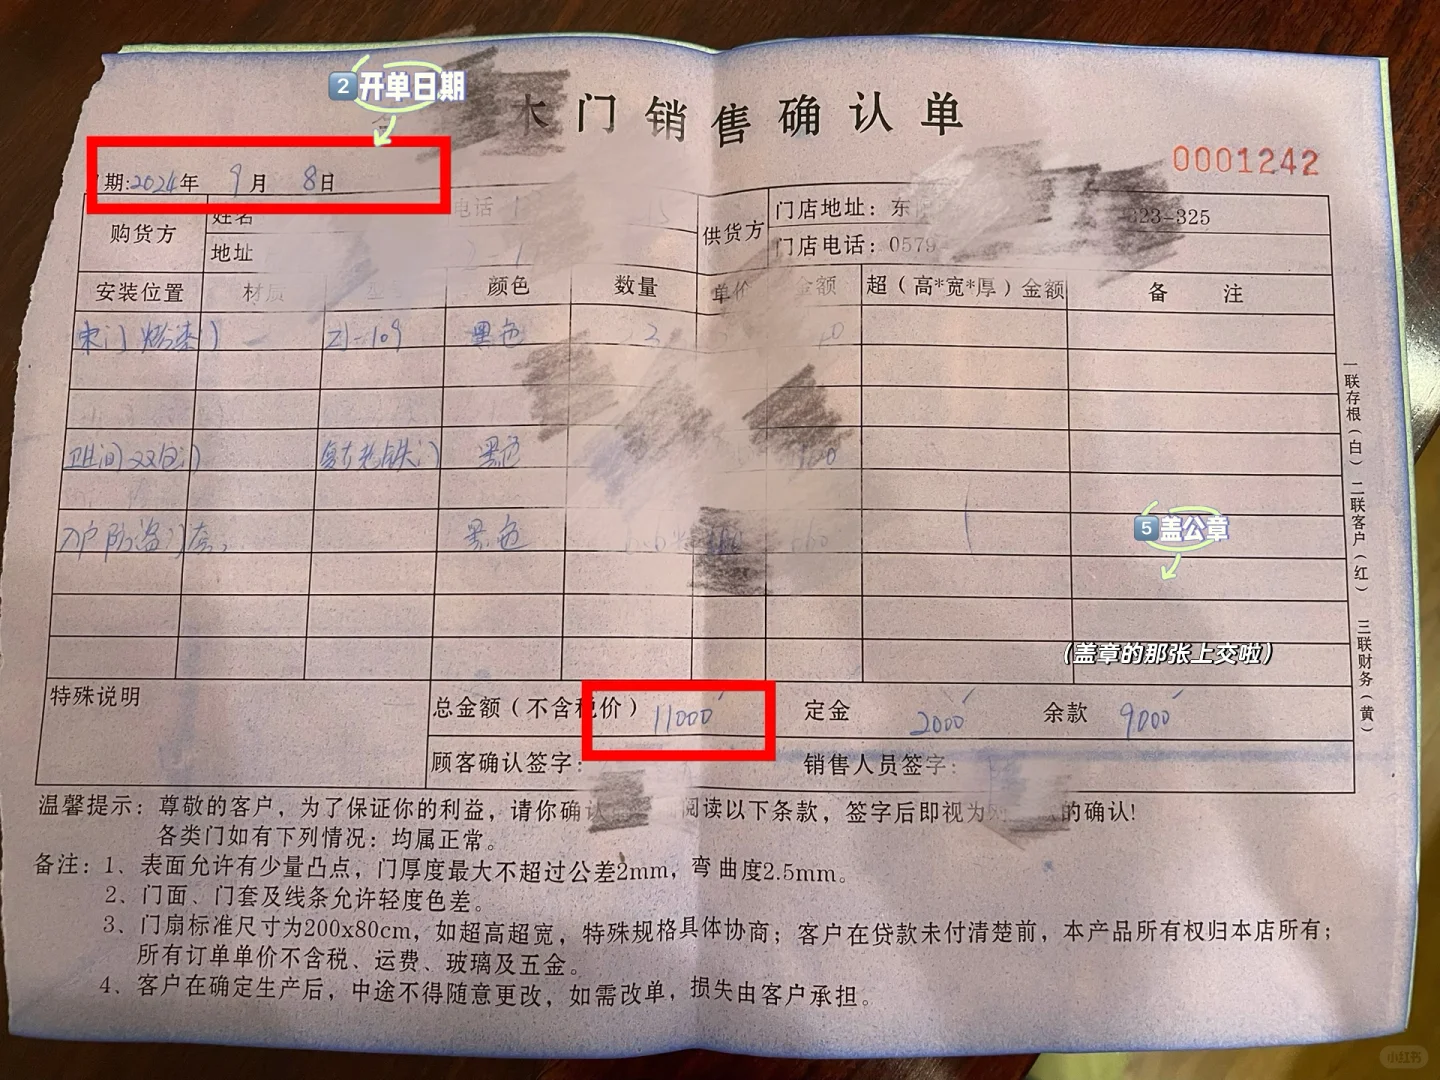 2 开单日期
木门销售确认单
0001242
期:2024年 9月 8日
购货方 姓名 电话 供货方 门店地址：东 323-325
地址 门店电话：0579
安装位置 材质 型 颜色 数量 单价 金额 超（高*宽*厚）金额 备 注
木门 烤漆门 — ZJ-109 黑色 2
卫生间双包门 复古老铁门 黑色
入户防盗门套 黑色
5 盖公章
（盖章的那张上交啦）
一联存根（白） 二联客户（红） 三联财务（黄）
特殊说明 总金额（不含税价） 11000 定金 2000 余款 9000
顾客确认签字： 销售人员签字：
温馨提示：尊敬的客户，为了保证你的利益，请你确认 阅读以下条款，签字后即视为对 的确认!
各类门如有下列情况：均属正常。
备注：1、表面允许有少量凸点，门厚度最大不超过公差2mm，弯曲度2.5mm。
2、门面、门套及线条允许轻度色差。
3、门扇标准尺寸为200x80cm，如超高超宽，特殊规格具体协商；客户在贷款未付清楚前，本产品所有权归本店所有；
所有订单单价不含税、运费、玻璃及五金。
4、客户在确定生产后，中途不得随意更改，如需改单，损失由客户承担。
小红书